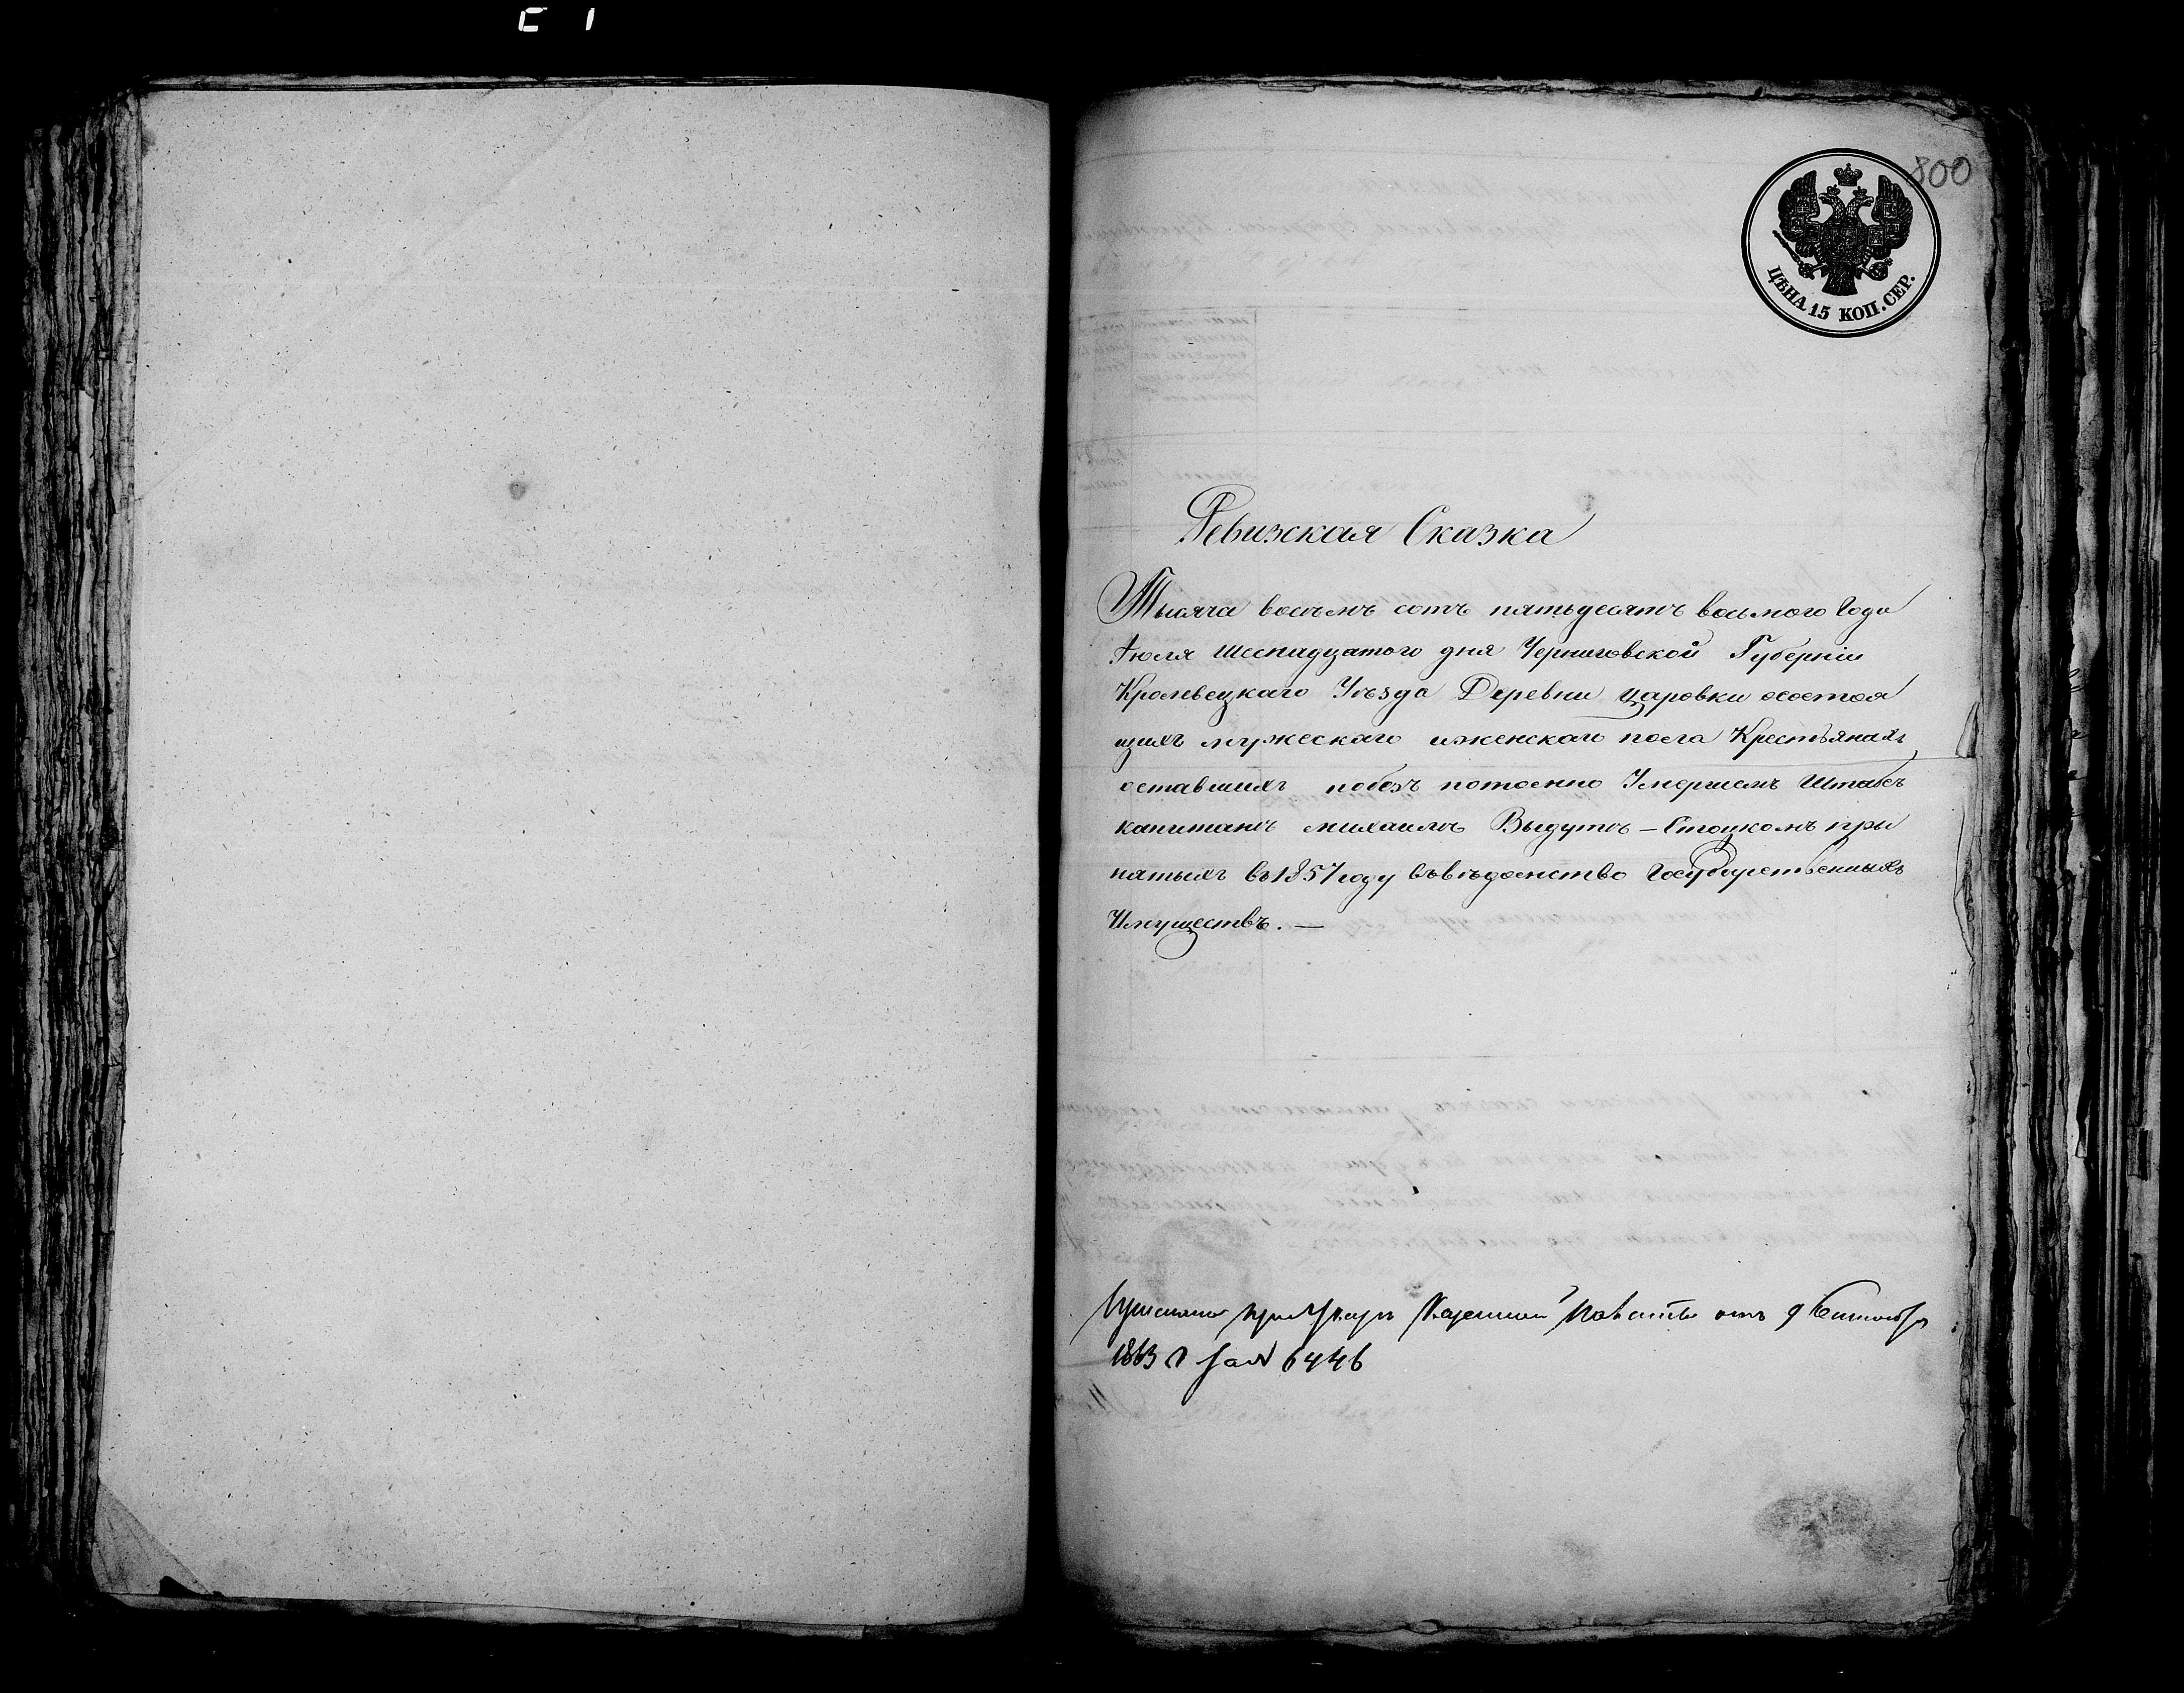 800
ЦѢНА 15 КОП. СЕР.
Ревизская Сказка
Тысяча восемь сотъ пятьдесятъ восьмого Года
Іюля шеснадцатого дня Черниговской Губерніи
Кролевецкаго Уѣзда Деревни Царовки осостоя
щихъ мужескаго иженскаго пола Крестьянахъ
оставшихъ побезъ потоенно Умершемъ Штабсъ
капитанѣ михаилѣ Выдутъ-Стоцкомъ при
нятыхъ въ 1857 году въвѣдоенство Государственныхъ
Имуществъ. —
отъ 9 Сентября
1863 г за № 6446